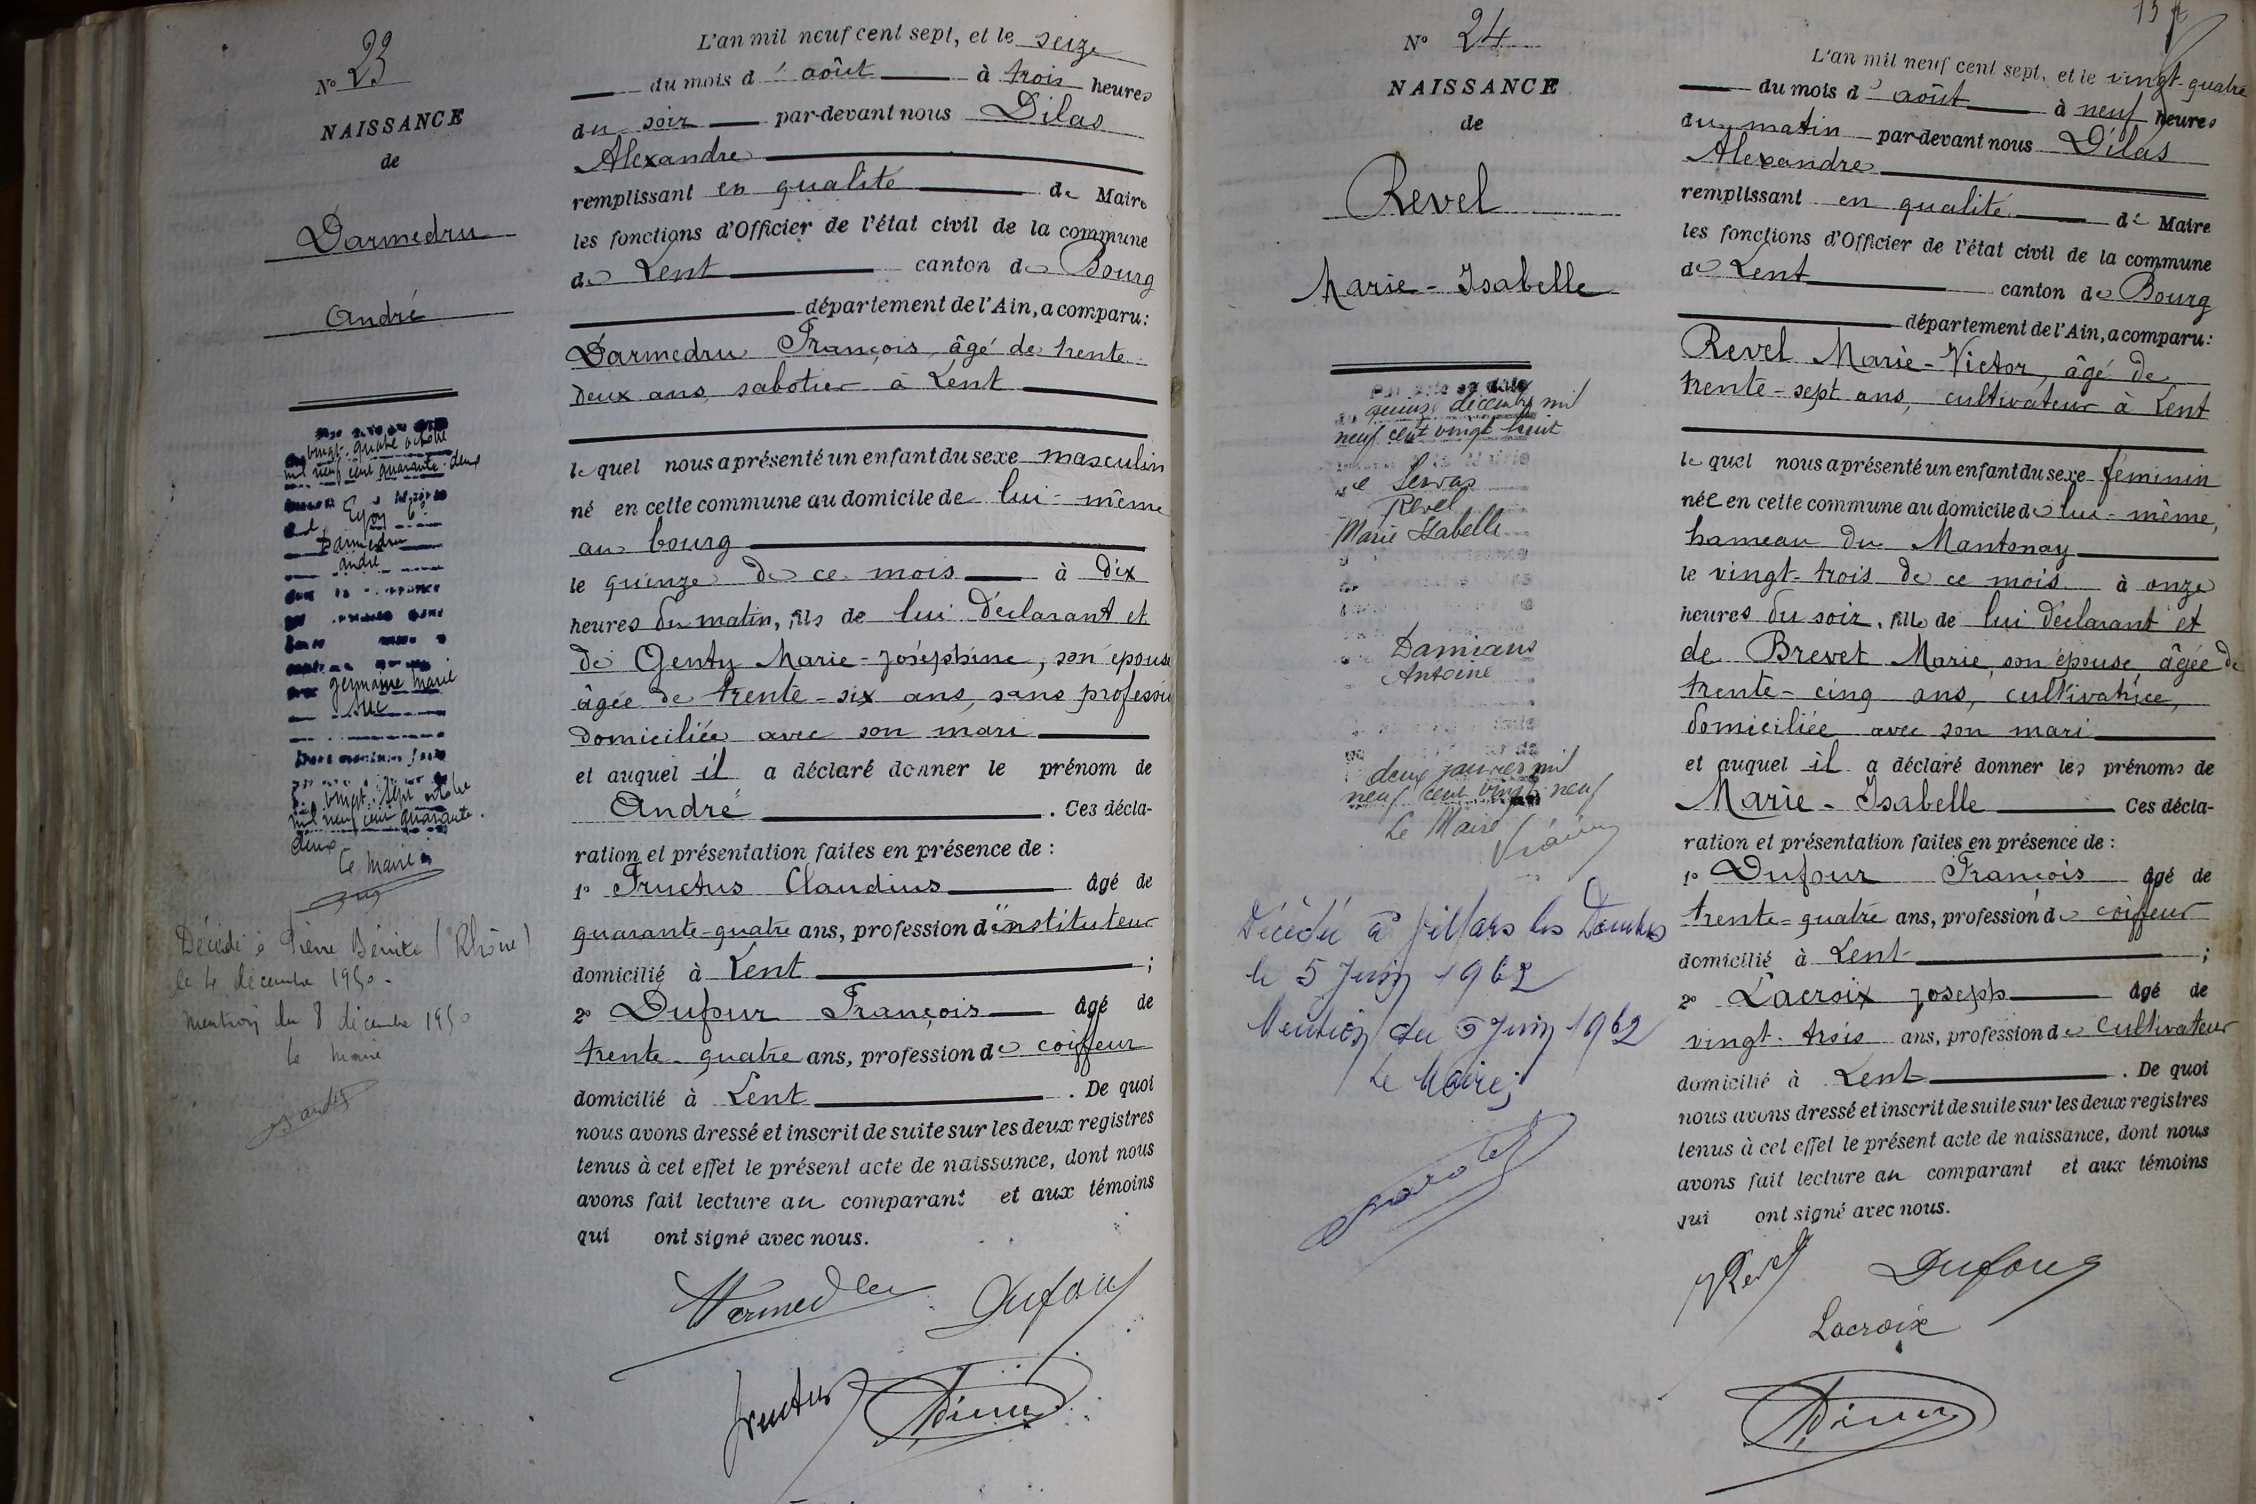 N° 23
NAISSANCE
de
Darmedru
André
vingt-quatre octobre
mil neuf cent quarante-deux
Darmedru
andré
germaine marie
vingt-sept octobre
mil neuf cent quarante-
deux
Le maire
Décédé à Pierre Bénite (Rhône)
le 4 décembre 1950.
mention du 8 décembre 1950
le maire
L'an mil neuf cent sept, et le seize
du mois d'août à trois heures
du soir par-devant nous Dilas
Alexandre
remplissant en qualité de Maire
les fonctions d'Officier de l'état civil de la commune
de Lent canton de Bourg
département de l'Ain, a comparu:
Darmedru François, âgé de trente-
deux ans, sabotier à Lent
lequel nous a présenté un enfant du sexe masculin
né en cette commune au domicile de lui-même
au bourg
le quinze de ce mois à dix
heures du matin, fils de lui déclarant et
de Genty Marie-Joséphine, son épouse
âgée de trente-six ans, sans profession
domiciliée avec son mari
et auquel il a déclaré donner le prénom de
André. Ces décla-
ration et présentation faites en présence de :
1° Fructus Claudius âgé de
quarante-quatre ans, profession d'instituteur
domicilié à Lent ;
2° Dufour François âgé de
trente-quatre ans, profession de coiffeur
domicilié à Lent. De quoi
nous avons dressé et inscrit de suite sur les deux registres
tenus à cet effet le présent acte de naissance, dont nous
avons fait lecture au comparant et aux témoins
qui ont signé avec nous.
Darmedru Dufour
Fructus
N° 24
NAISSANCE
de
Revel
Marie-Isabelle
quinze décembre mil
neuf cent vingt huit
Servas
Revel
Marie Isabelle
Damians
Antoine
deux janvier mil
neuf cent vingt neuf
Le Maire
Décédée à Villars les Dombes
le 5 Juin 1962
Mention du 9 Juin 1962
Le Maire,
L'an mil neuf cent sept, et le vingt-quatre
du mois d'août à neuf heures
du matin par-devant nous Dilas
Alexandre
remplissant en qualité de Maire
les fonctions d'Officier de l'état civil de la commune
de Lent canton de Bourg
département de l'Ain, a comparu:
Revel Marie-Victor, âgé de
trente-sept ans, cultivateur à Lent
lequel nous a présenté un enfant du sexe féminin
née en cette commune au domicile de lui-même,
hameau du Mantonay
le vingt-trois de ce mois à onze
heures du soir, fille de lui déclarant et
de Brevet Marie, son épouse âgée de
trente-cinq ans, cultivatrice,
domiciliée avec son mari
et auquel il a déclaré donner les prénoms de
Marie-Isabelle Ces décla-
ration et présentation faites en présence de :
1° Dufour François âgé de
trente-quatre ans, profession de coiffeur
domicilié à Lent ;
2° Lacroix Joseph âgé de
vingt-trois ans, profession de cultivateur
domicilié à Lent. De quoi
nous avons dressé et inscrit de suite sur les deux registres
tenus à cet effet le présent acte de naissance, dont nous
avons fait lecture au comparant et aux témoins
qui ont signé avec nous.
Revel Dufour
Lacroix